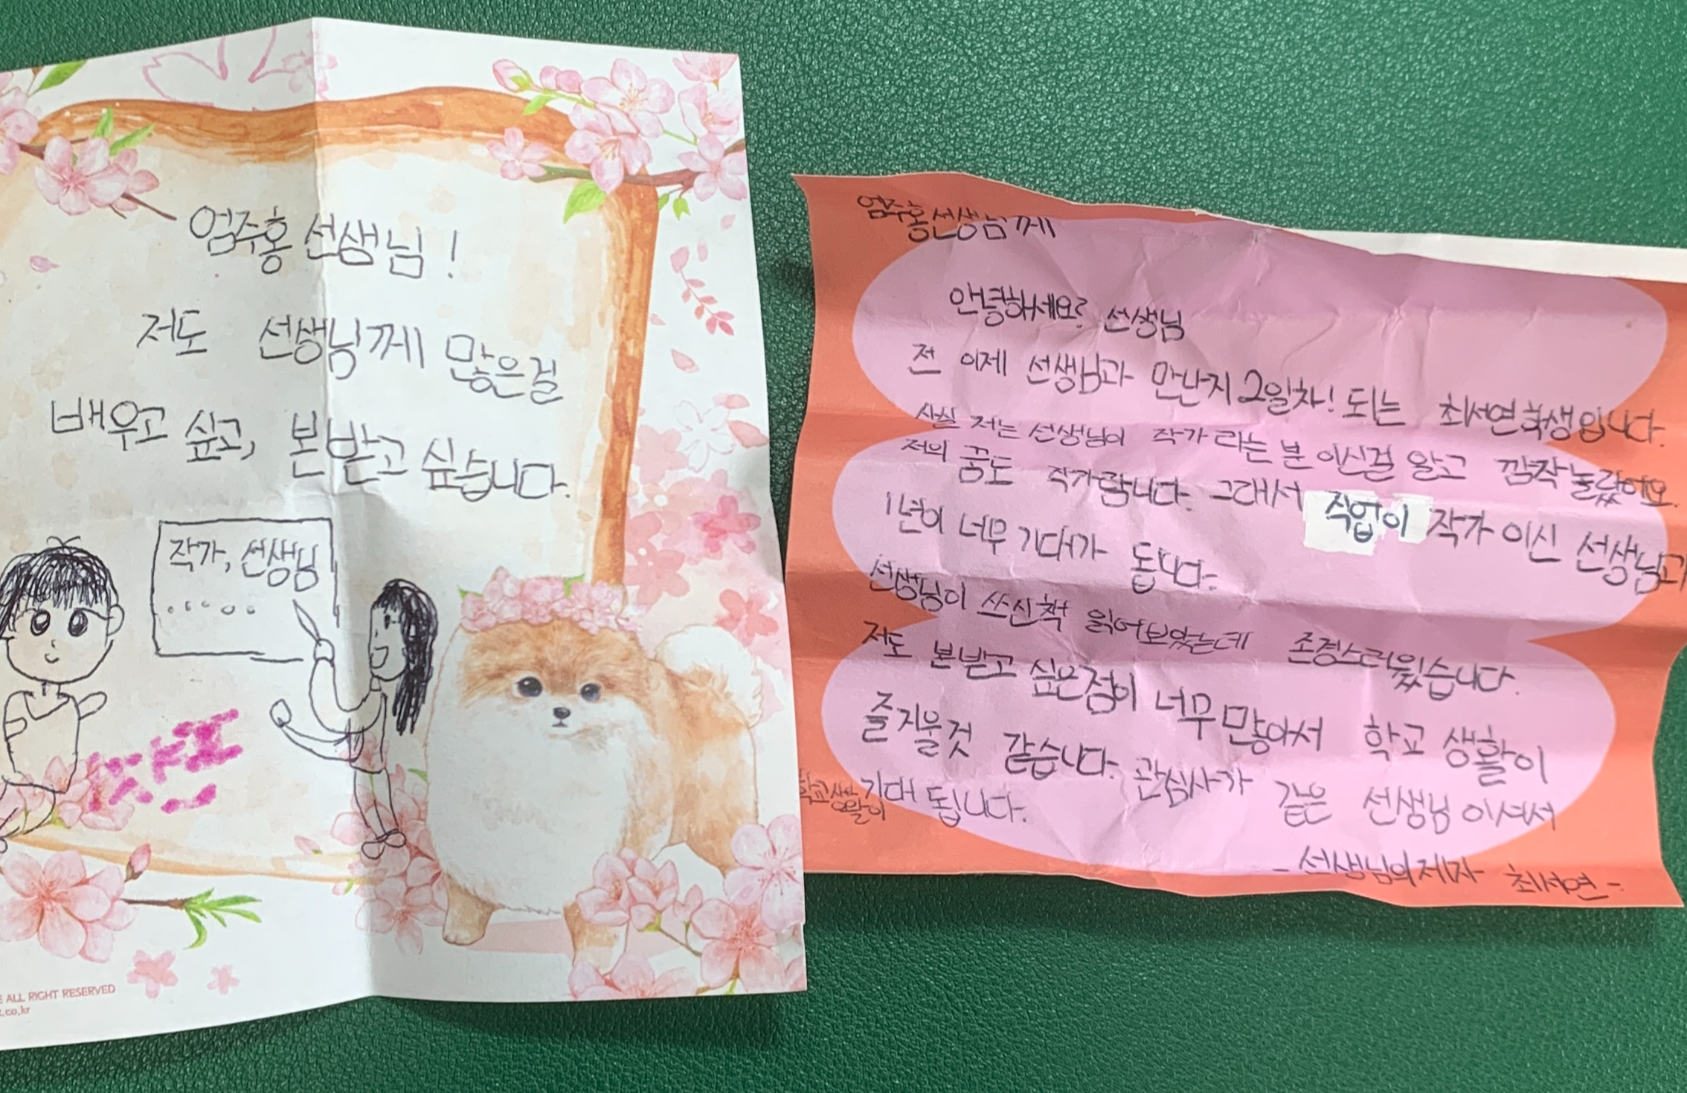 엄주홍 선생님!
저도 선생님께 많은걸
배우고 싶고, 본받고 싶습니다.
작가, 선생님
.....
E ALL RIGHT RESERVED
.co.kr
엄주홍선생님께
안녕하세요? 선생님
전 이제 선생님과 만난지 2일차! 되는 최서연학생입니다.
사실 저는 선생님이 작가 라는 분 이신걸 알고 깜짝 놀랐어요.
저의 꿈도 작가랍니다. 그래서 직업이 작가 이신 선생님과
1년이 너무 기대가 됩니다.
선생님이 쓰신책 읽어보았는데 존경스러웠습니다.
저도 본받고 싶은점이 너무 많아서 학교 생활이
즐거울것 같습니다. 관심사가 같은 선생님 이셔서
학교생활이 기대 됩니다.
- 선생님의제자 최서연 -